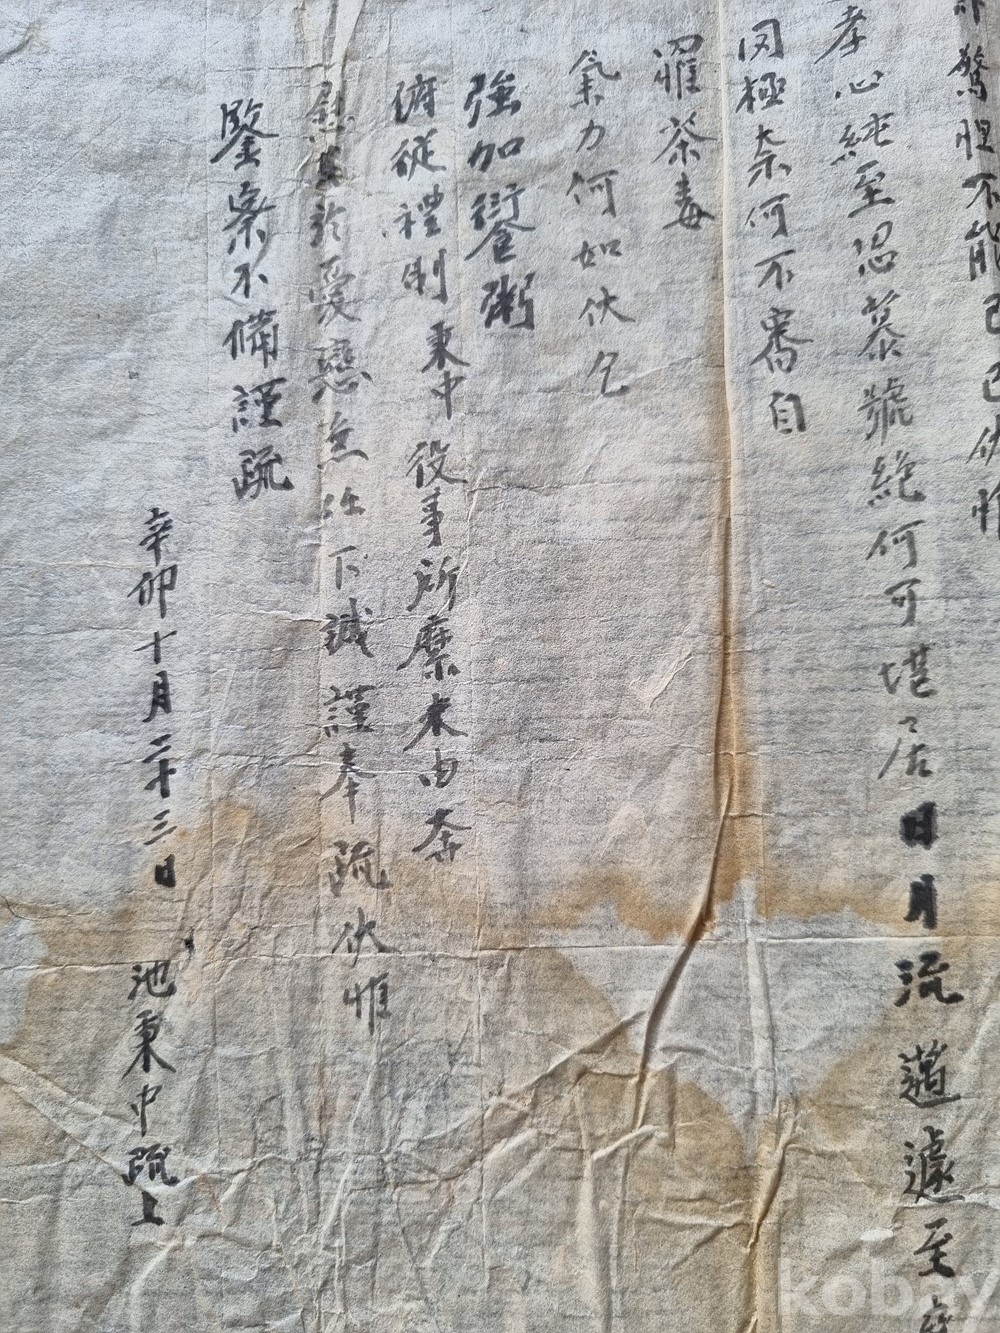 驚怛不能已已伏惟
孝心純至思慕號絶何可堪居日月流邁遽至
罔極奈何不審自
罹荼毒
氣力何如伏乞
強加飱粥
俯從禮制秉中役事所縻未由奔
慰其於憂戀無任下誠謹奉疏伏惟
鑒察不備謹疏
辛卯十月二十三日 池秉中疏上
kobay